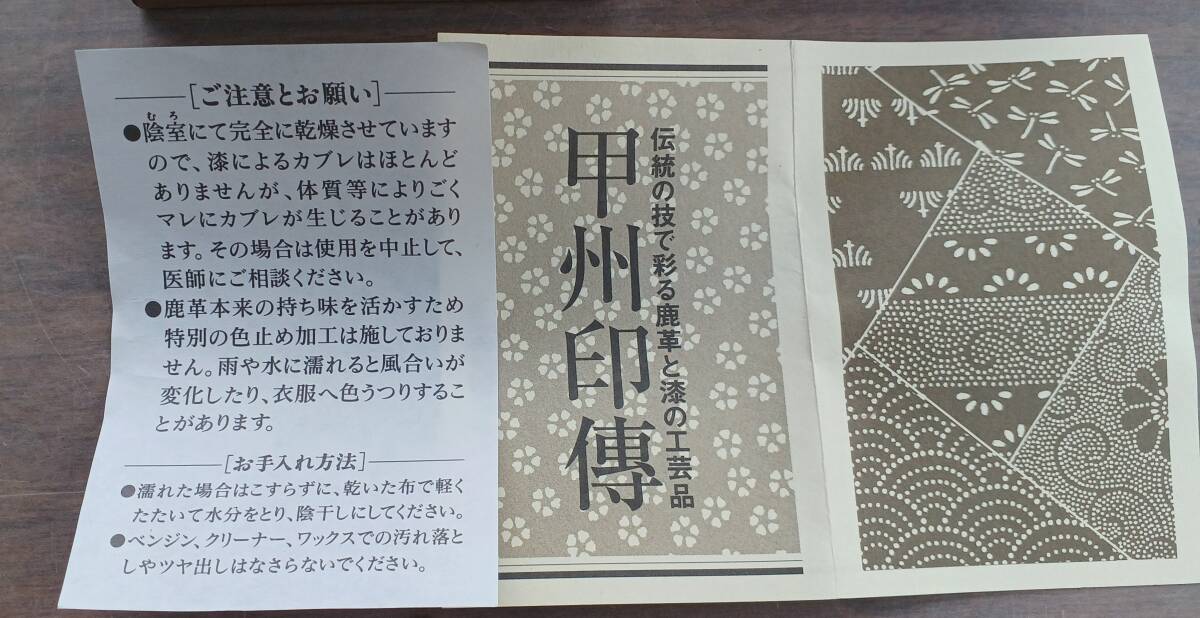 [ご注意とお願い]
むろ
●陰室にて完全に乾燥させています
ので、漆によるカブレはほとんど
ありませんが、体質等によりごく
マレにカブレが生じることがあり
ます。その場合は使用を中止して、
医師にご相談ください。
●鹿革本来の持ち味を活かすため
特別の色止め加工は施しておりま
せん。雨や水に濡れると風合いが
変化したり、衣服へ色うつりするこ
とがあります。
[お手入れ方法]
●濡れた場合はこすらずに、乾いた布で軽く
たたいて水分をとり、陰干しにしてください。
●ベンジン、クリーナー、ワックスでの汚れ落と
しやツヤ出しはなさらないでください。
伝統の技で彩る鹿革と漆の工芸品
甲州印傳